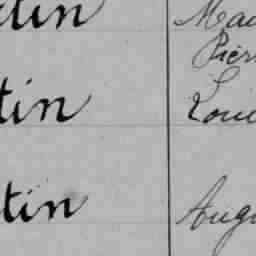 tin
Mad
Pier
tin
Loui
tin
Augu